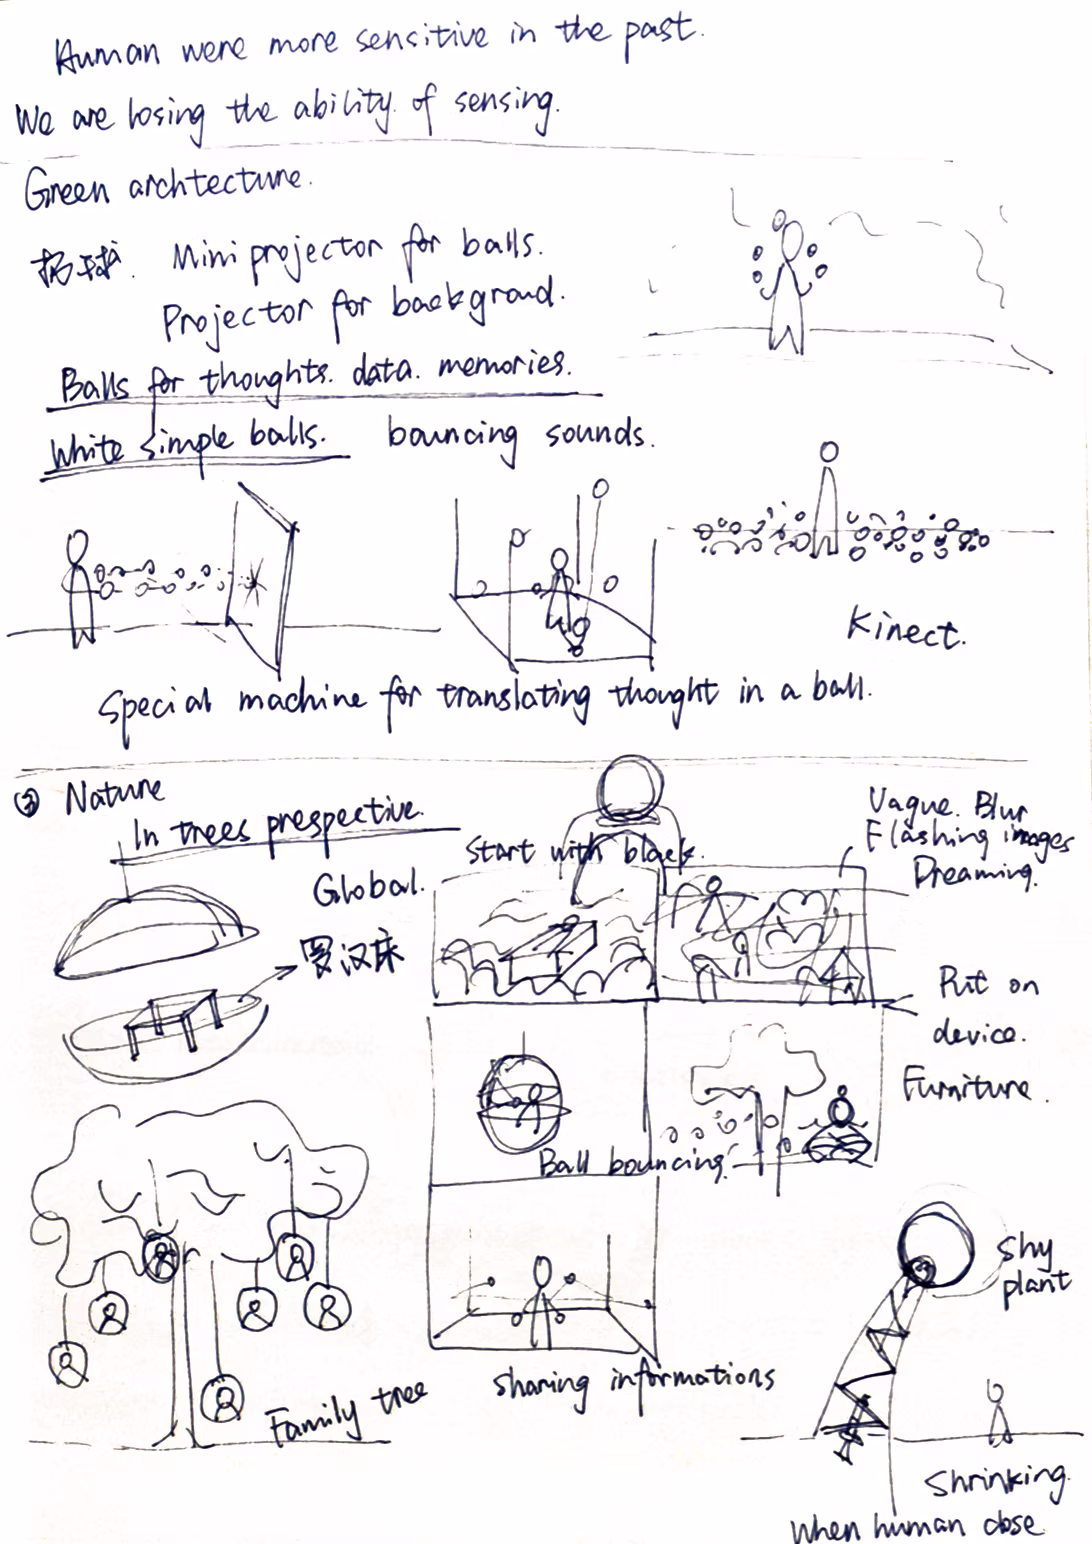 Human were more sensitive in the past.
We are losing the ability of sensing.
Green archtecture.
扔球. Mini projector for balls.
Projector for backgroud.
Balls for thoughts. data. memories.
White simple balls. bouncing sounds.
Kinect.
Special machine for translating thought in a ball.
② Nature
In trees prespective.
Global.
罗汉床
Start with black.
Vague. Blur
Flashing images
Dreaming.
Put on
device.
Furniture.
Ball bouncing.
sharing informations
Family tree
shy
plant
Shrinking.
When human close